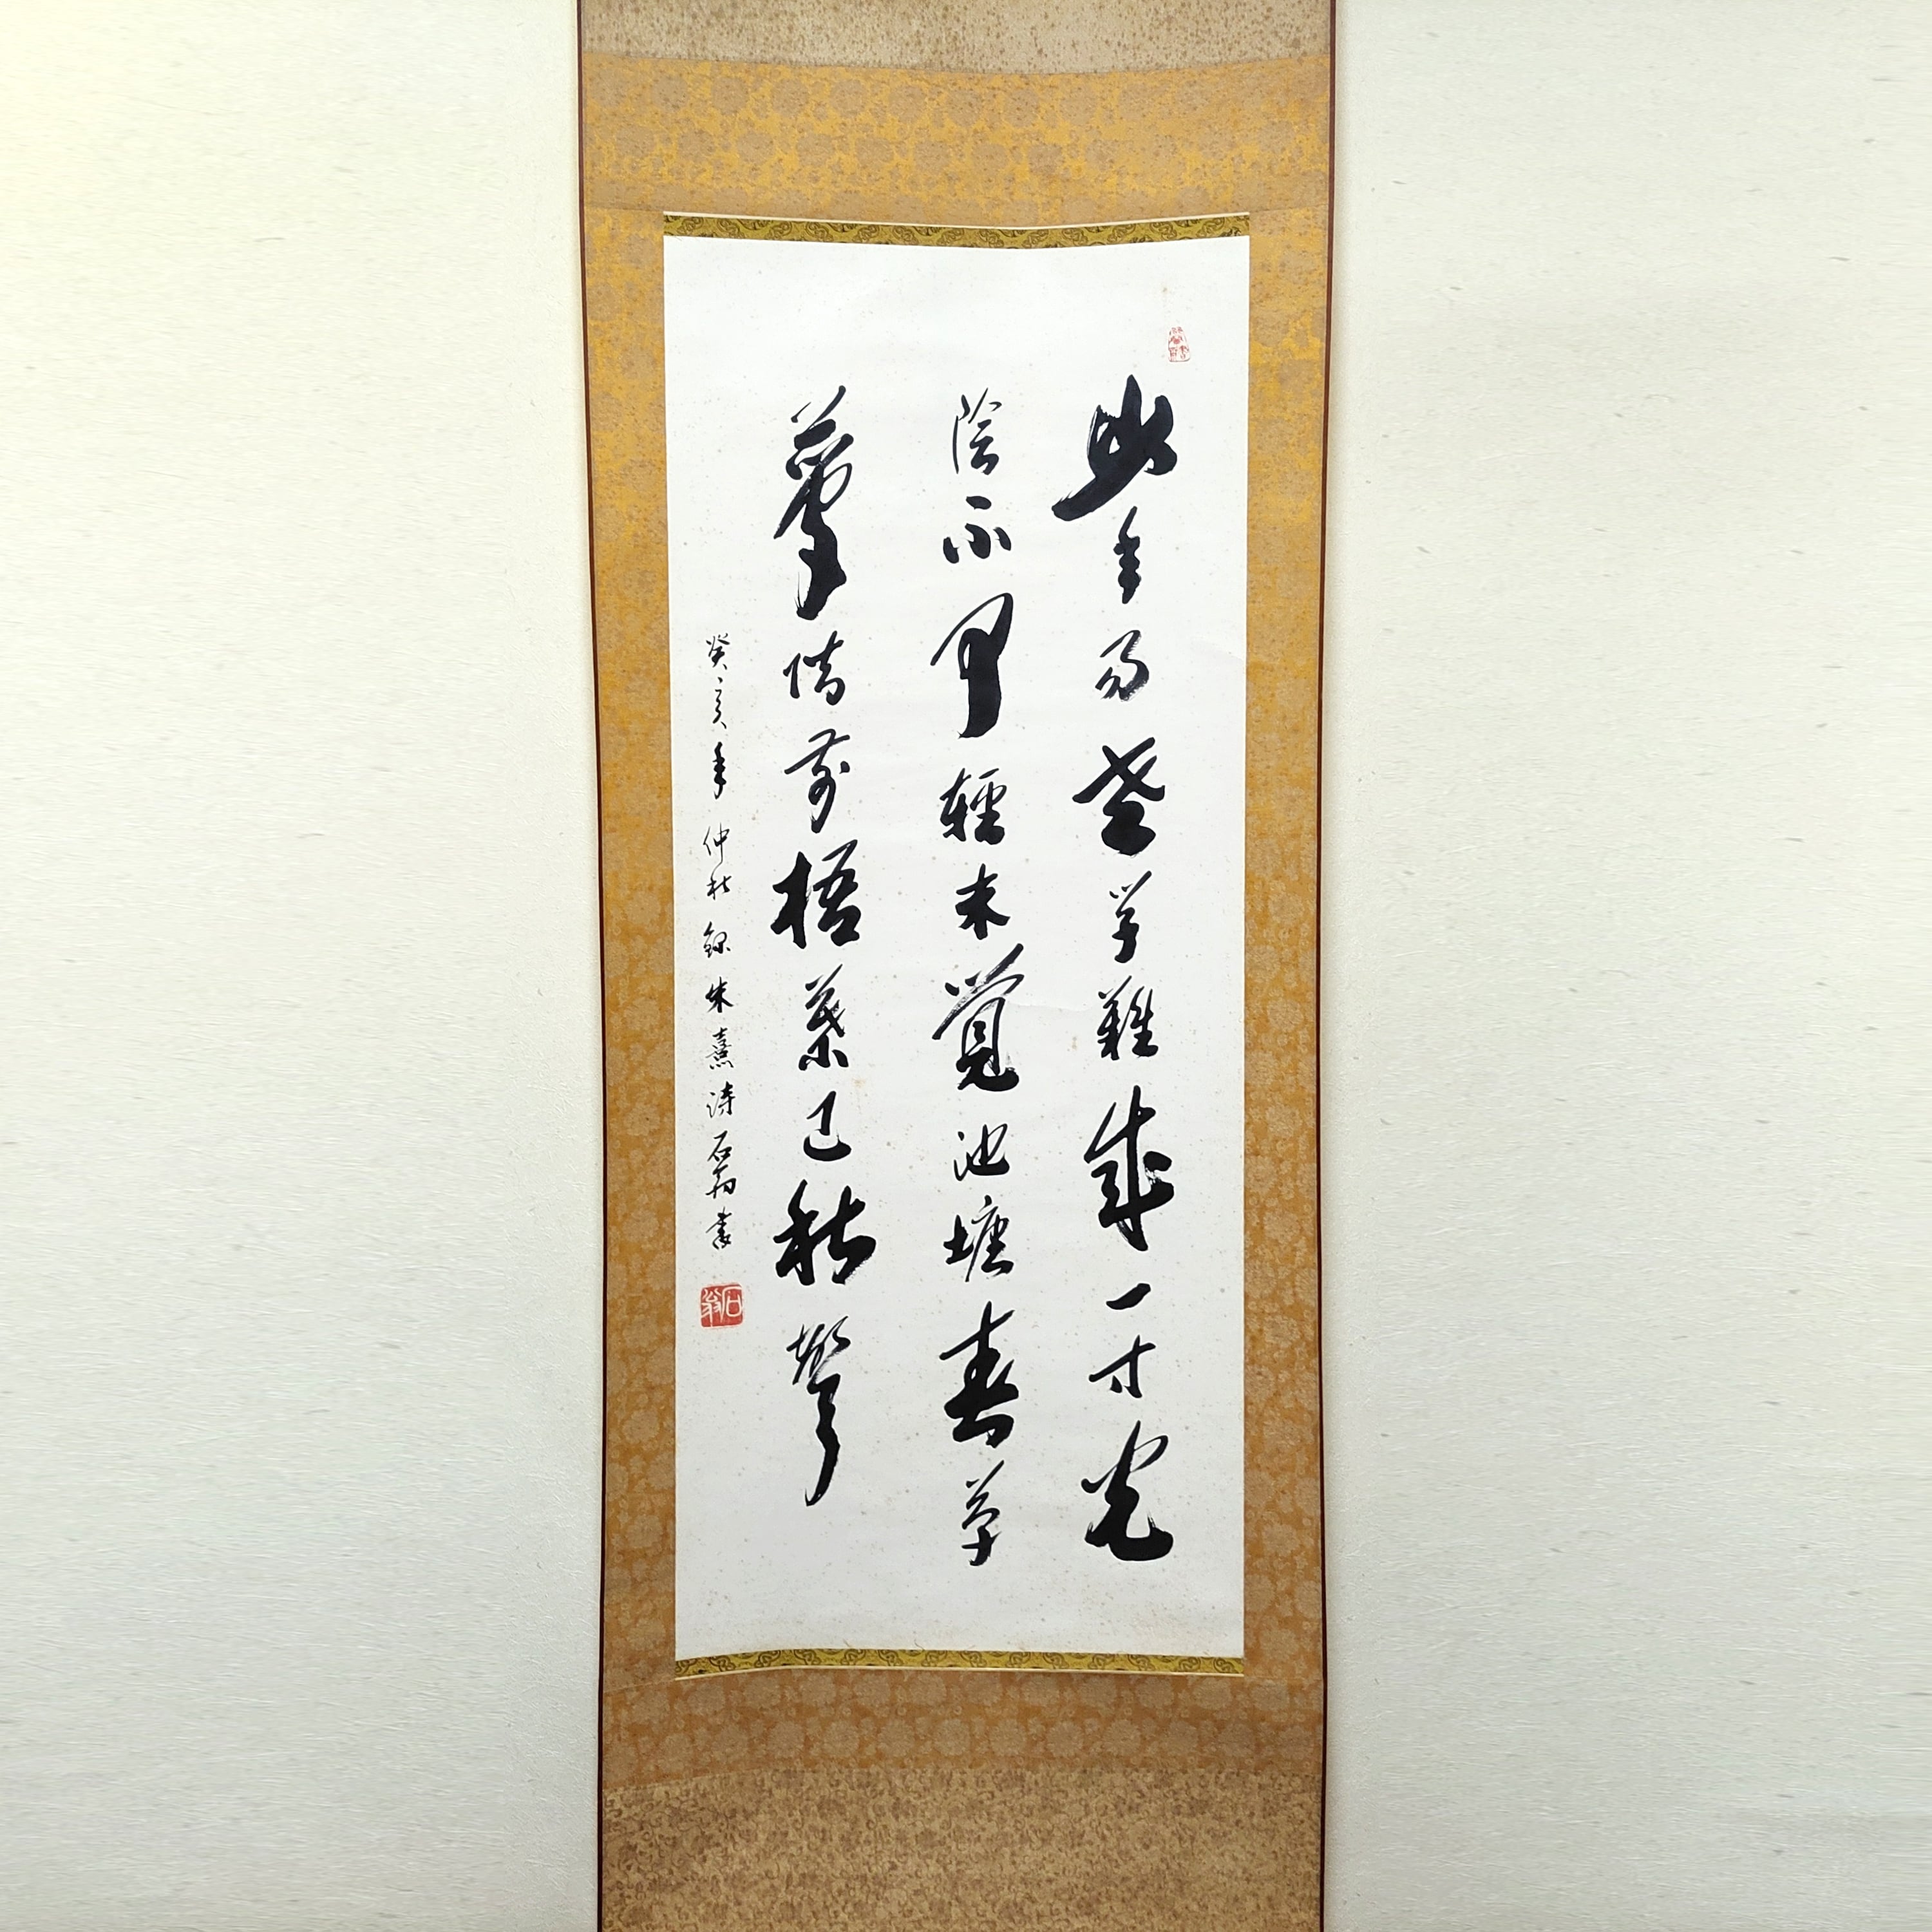 少年易老學難成一寸光
陰不可輕未覺池塘春草
夢階前梧葉已秋聲
癸亥年仲秋錄朱熹詩石翁書
石翁